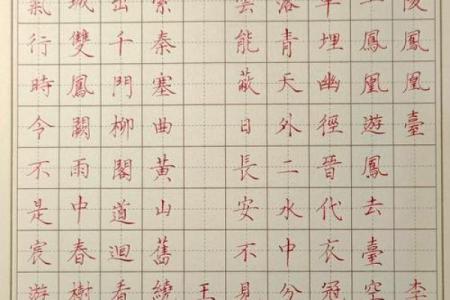 陵鳳凰臺李
上鳳凰遊鳳去臺空
草埋幽徑晉代衣冠
落青天外二水中分
雲能蔽日長安不見
王
縈秦塞曲黃山舊繞
出千門柳閣道迴看
城雙鳳闕雨中春樹
氣行時令不是宸遊